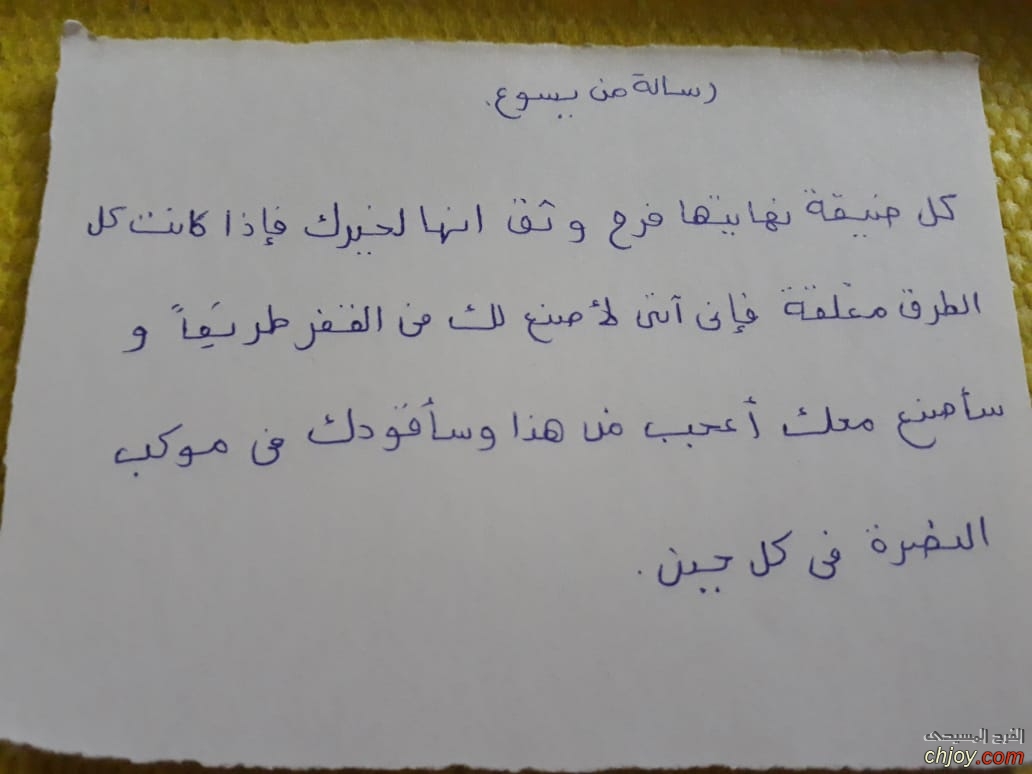 رسالة من يسوع.
كل ضيقة نهايتها فرح و ثق انها لخيرك فإذا كانت كل
الطرق مغلقة فإنى آتى لأصنع لك فى القفر طريقاً و
سأصنع معك أعجب من هذا وسأقودك فى موكب
النصرة فى كل حين.
الفرح المسيحى
chjoy.com